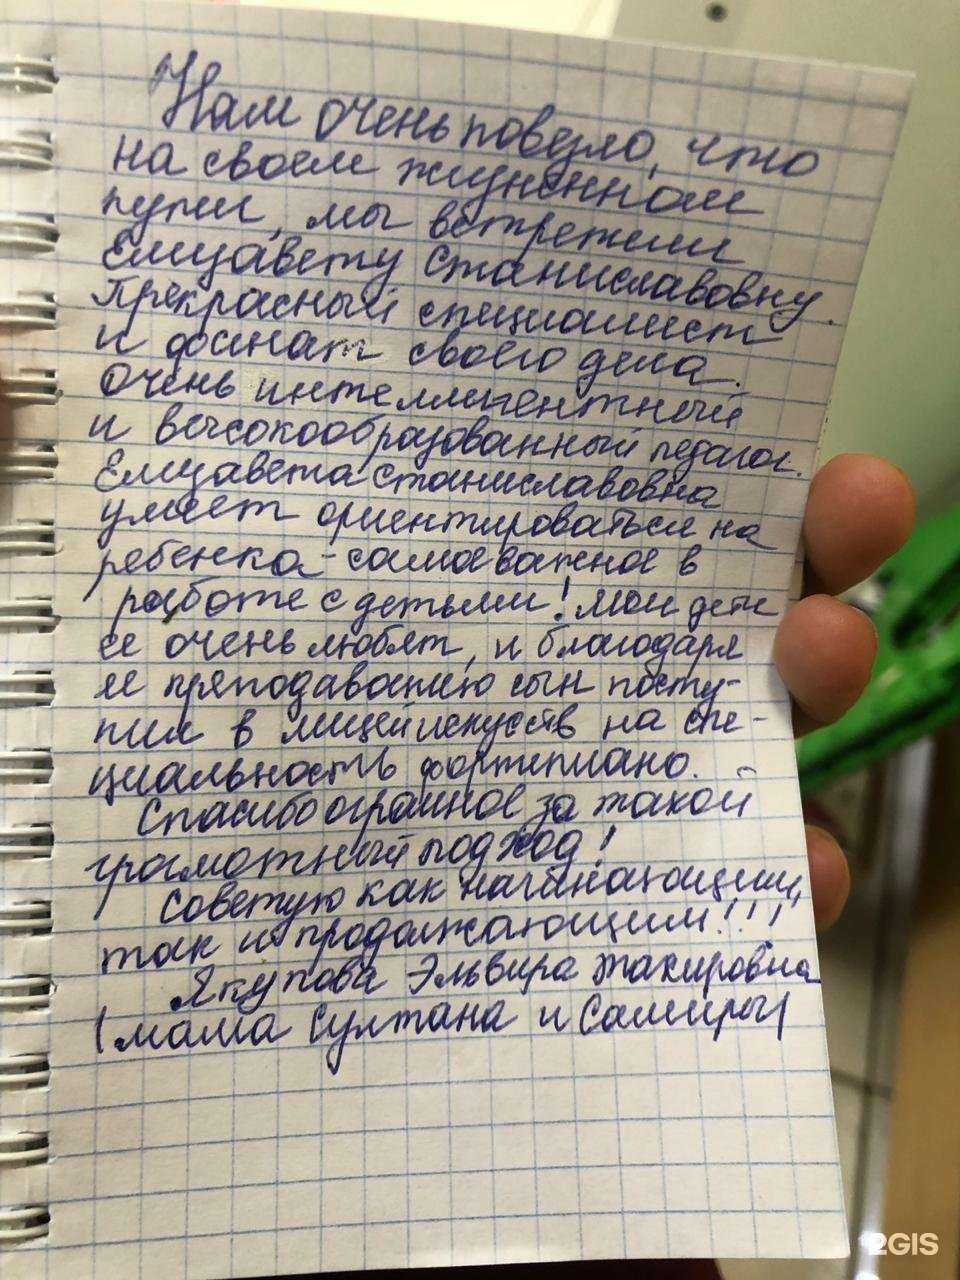 Нам очень повезло, что
на своем жизненном
пути, мы встретили
Елизавету Станиславовну.
Прекрасный специалист
и фанат своего дела.
Очень интеллигентный
и высокообразованный педагог.
Елизавета Станиславовна
умеет ориентироваться на
ребенка - самое важное в
работе с детьми! Мои дети
ее очень любят, и благодаря
ее преподаванию сын посту-
пил в лицей искусств на спе-
циальность фортепиано.
Спасибо огромное за такой
грамотный подход!
Советую как начинающим,
так и продолжающим!!!
Якупова Эльвира Закировна
(мама Султана и Самиры)
2GIS